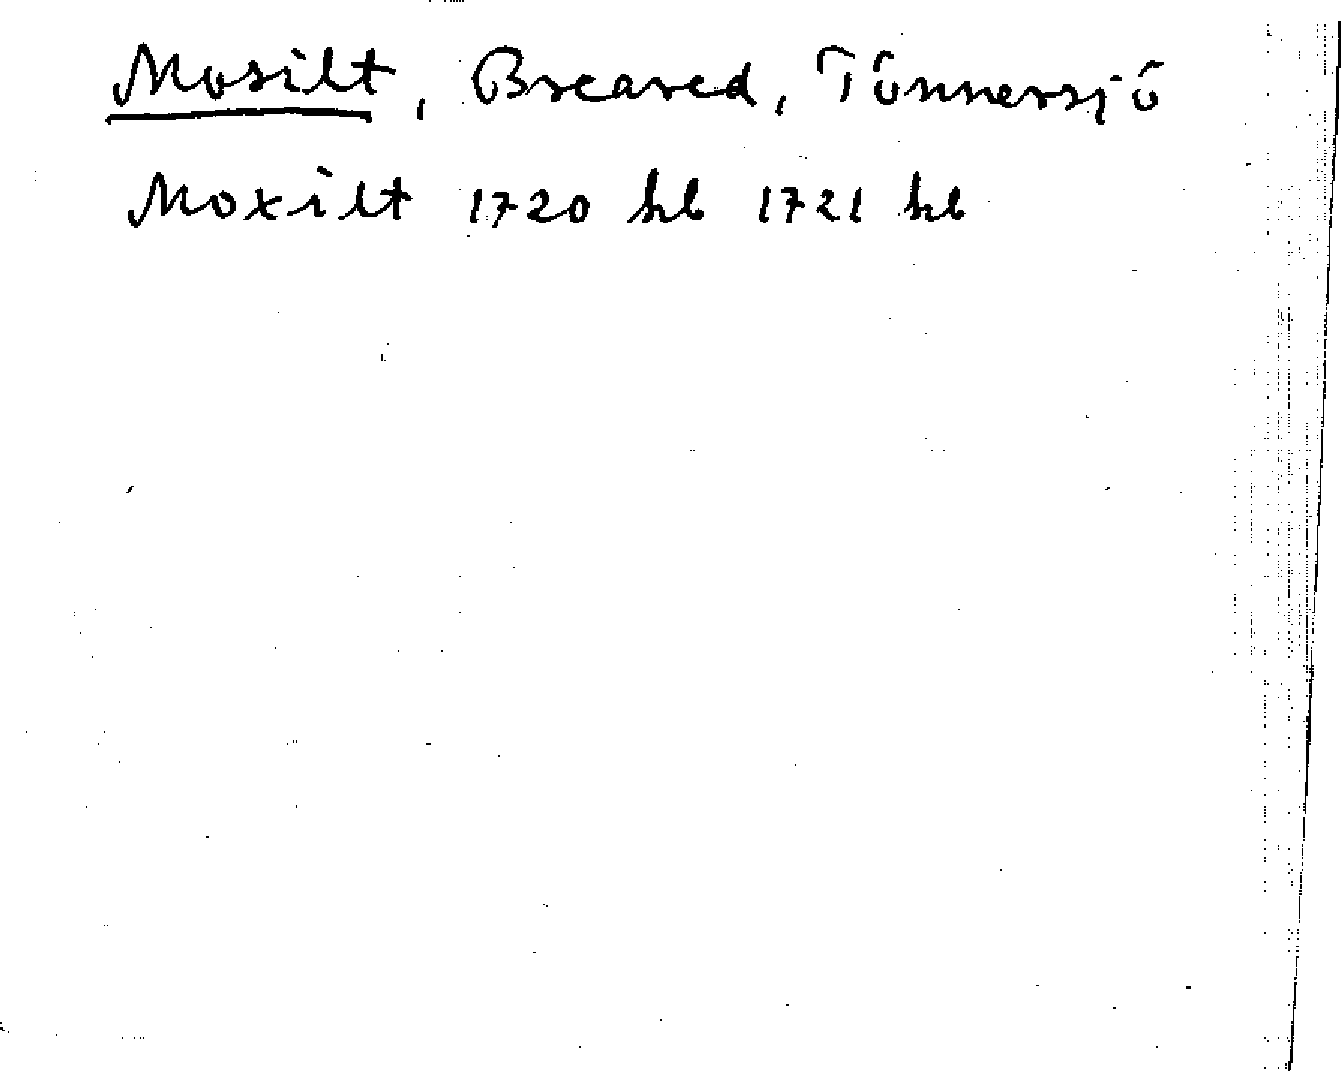 Mosilt, Breared, Tönnersjö
Moxilt 1720 hb 1721 hb